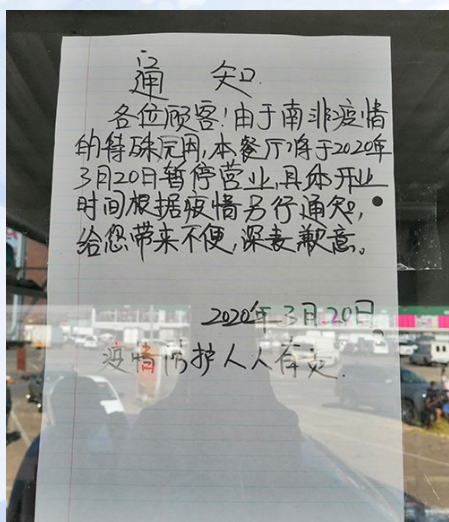 通 知
各位顾客!由于南非疫情
的特殊原因,本餐厅将于2020年
3月20日暂停营业,具体开业
时间根据疫情另行通知,
给您带来不便,深表歉意。
2020年3月20日
疫情防护人人有责.